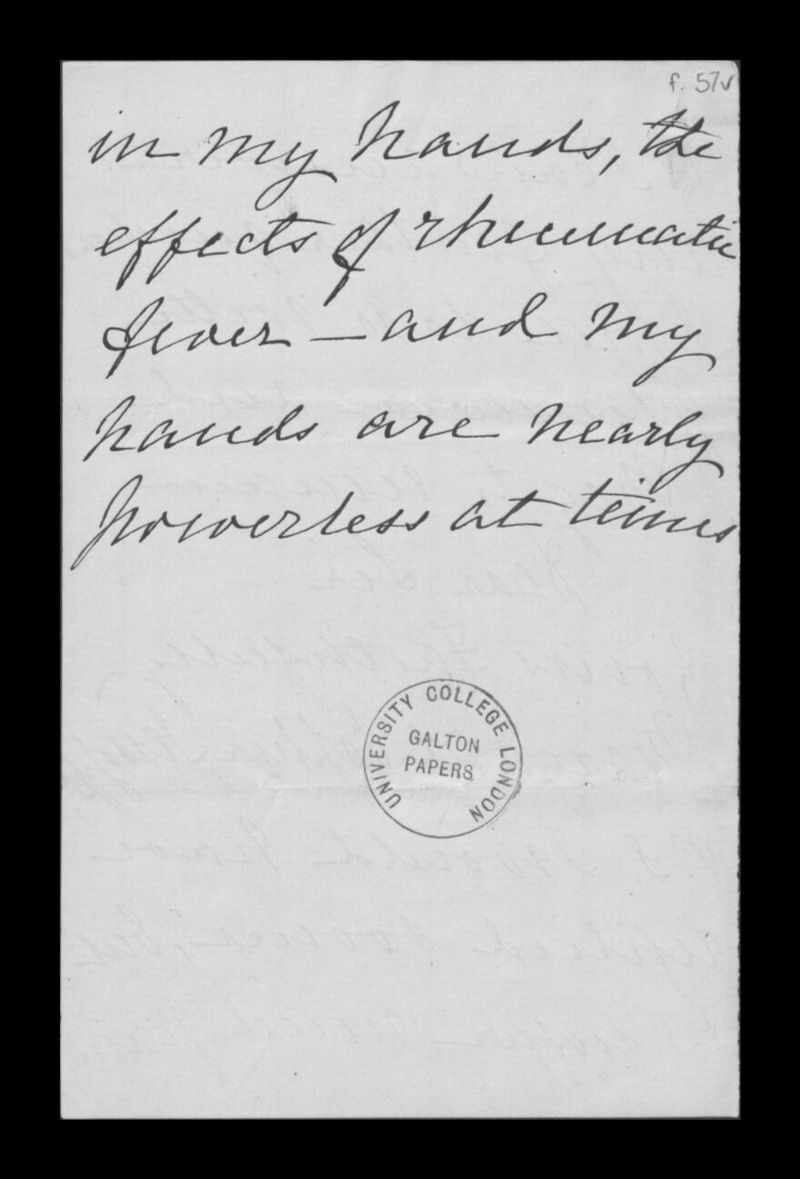 f. 57v
in my hands, the
effects of rheumatic
fever — and my
hands are nearly
powerless at times
UNIVERSITY COLLEGE LONDON
GALTON
PAPERS